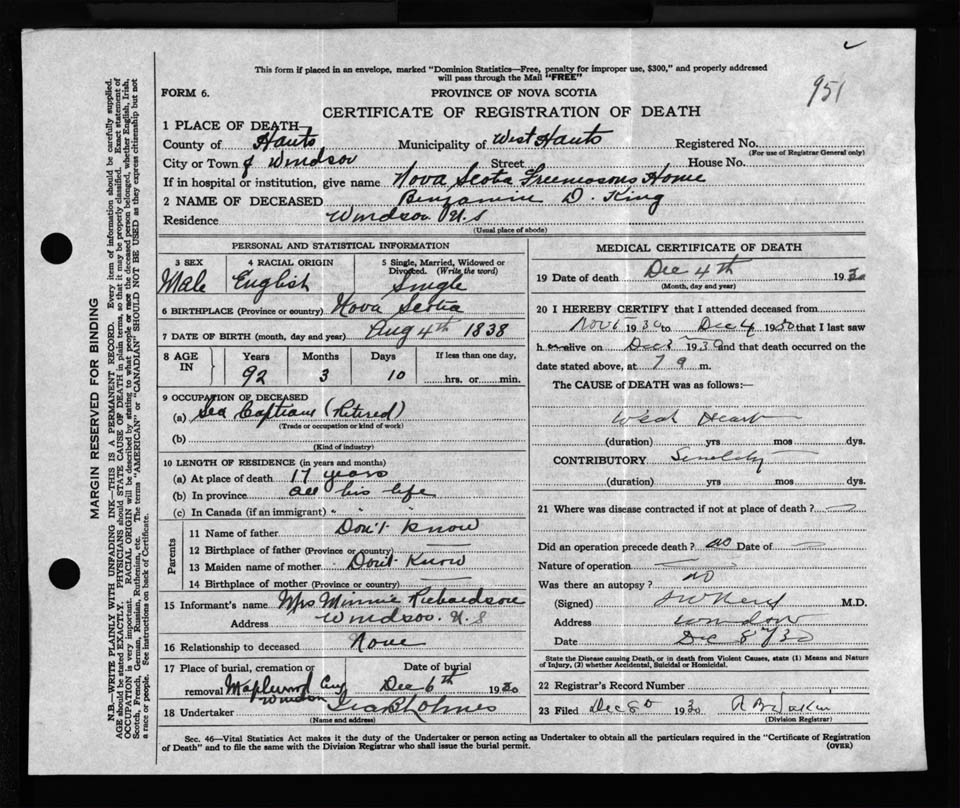 This form if placed in an envelope, marked "Dominion Statistics—Free, penalty for improper use, $300," and properly addressed
will pass through the Mail "FREE"
951
FORM 6.
PROVINCE OF NOVA SCOTIA
CERTIFICATE OF REGISTRATION OF DEATH
1 PLACE OF DEATH—
County of Hants Municipality of West Hants Registered No.
(For use of Registrar General only)
City or Town of Windsor Street House No.
If in hospital or institution, give name Nova Scotia Freemasons Home
2 NAME OF DECEASED Benjamin D. King
Residence Windsor N.S
(Usual place of abode)
PERSONAL AND STATISTICAL INFORMATION
3 SEX 4 RACIAL ORIGIN 5 Single, Married, Widowed or
Divorced. (Write the word)
Male English Single
6 BIRTHPLACE (Province or country) Nova Scotia
7 DATE OF BIRTH (month, day and year) Aug 4th 1838
8 AGE IN Years Months Days If less than one day,
92 3 10 hrs. or min.
9 OCCUPATION OF DECEASED
(a) Sea Captian (Retired)
(Trade or occupation or kind of work)
(b)
(Kind of industry)
10 LENGTH OF RESIDENCE (in years and months)
(a) At place of death 17 years
(b) In province all his life
(c) In Canada (if an immigrant) " " "
Parents
11 Name of father Don't know
12 Birthplace of father (Province or country)
13 Maiden name of mother Don't Know
14 Birthplace of mother (Province or country)
15 Informant's name Mrs Minnie Richardson
Address Windsor. N.S
16 Relationship to deceased None
17 Place of burial, cremation or Date of burial
removal Maplewood Cem Dec 6th 1930
Windsor
18 Undertaker Ira B Lohnes
(Name and address)
MEDICAL CERTIFICATE OF DEATH
19 Date of death Dec 4th 1930
(Month, day and year)
20 I HEREBY CERTIFY that I attended deceased from
Nov 1930 to Dec 4 1930 that I last saw
h alive on Dec 3 1930 and that death occurred on the
date stated above, at 7 9 m.
The CAUSE of DEATH was as follows:—
Weak Heart
(duration) yrs mos dys.
CONTRIBUTORY Senility
(duration) yrs mos dys.
21 Where was disease contracted if not at place of death?
Did an operation precede death? no Date of
Nature of operation
Was there an autopsy? no
(Signed) M.D.
Address Windsor
Date Dec 8 /30
State the Disease causing Death, or in death from Violent Causes, state (1) Means and Nature
of Injury, (2) whether Accidental, Suicidal or Homicidal.
22 Registrar's Record Number
23 Filed Dec 8 1930
(Division Registrar)
Sec. 46—Vital Statistics Act makes it the duty of the Undertaker or person acting as Undertaker to obtain all the particulars required in the "Certificate of Registration
of Death" and to file the same with the Division Registrar who shall issue the burial permit.
(OVER)
MARGIN RESERVED FOR BINDING
N.B.—WRITE PLAINLY WITH UNFADING INK—THIS IS A PERMANENT RECORD. Every item of information should be carefully supplied.
AGE should be stated EXACTLY. PHYSICIANS should STATE CAUSE OF DEATH in plain terms, so that it may be properly classified. Exact statement of
OCCUPATION is very important. RACIAL ORIGIN will be described by stating to what people or race the deceased person belonged, whether English, Irish,
Scotch, French, German, Russian, Ruthenian, etc. The terms "AMERICAN" or "CANADIAN" SHOULD NOT BE USED as they express citizenship but not
a race or people. See instructions on back of Certificate.